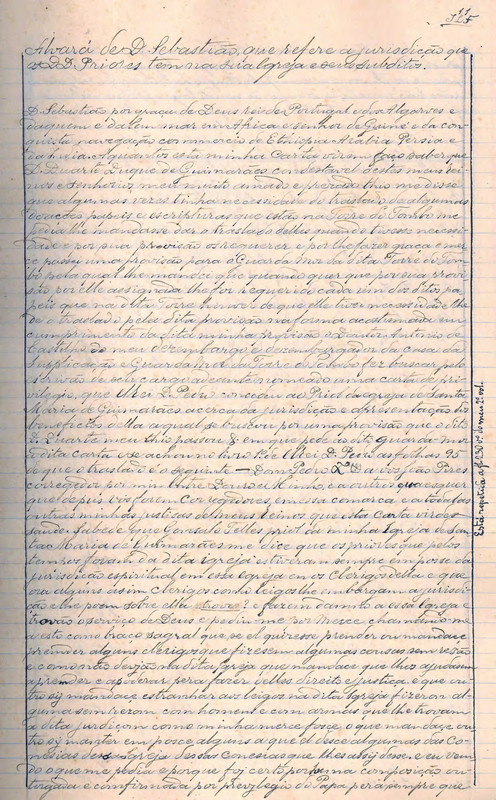 Alvará de D. Sebastião, que refere a jurisdição que
os DD. Priores tem na sua Igreja e seus subditos.
D. Sebastião por graça de Deus rei de Portugal e dos Algarves e
daquem e dalem mar em Africa e senhor de Guiné e da con-
quista navegação commercio de Ethiopia Arabia Persia e
da India. A quantos esta minha Carta virem faço saber que
D. Duarte Duque de Guimarães condestavel destes meus rei-
nos e Senhorios meu muito amado e prezado thio me disse
que algumas vezes tinha necessidade do traslado de algumas
doações papeis e escripturas que estão na Torre do Tombo me
pedia lhe mandasse dar o traslado dellas quando tivesse necessi-
dade e por sua provisão os requerer e por lhe fazer graça e mer-
ce passei uma provisão para o Guarda Mor da dita Torre do Tom-
bo pela qual lhe mandei que quando quer que por sua provi-
são por elle assignada lhe for requerido cada um dos ditos pa-
peis que na dita Torre houver de que elle tiver necessidade lhe
de o traslado pela dita provisão na forma acostumada em
cumprimento da dita minha provisão o Doutor Antonio de
Castilho do meu desembargo e desembargador da Casa da
Supplicação e Guarda Mor da Torre do Tombo fez buscar pelo
escrivão de seu cargo adeante nomeado uma carta de pri-
vilegio, que El Rei D. Pedro concedeu ao Priol da egreja de Santa
Maria de Guimarães acerca da jurisdição e apresentação dos
beneficios della a qual se buscou por uma provisão que o dito
D. Duarte meu thio passou & em que pede ao dito guarda mor
a dita carta e se achou no livro 1º de El Rei D. Pedro as folhas 95
de que o traslado é o seguinte — Dom Pedro &ª a vos João Pires
corregedor por mim Entre Douro e Minho, e a outros quaesquer
que depois vos forem Corregedores em essa comarca e a todalas
outras minhas justiças de meus reinos que esta carta virdes
saude. Sabede que Gonsalo Telles priol da minha Igreja de San-
ta Maria de Guimarães me dice que os priores que pelos
tempos foram da dita igreja estiveram sempre em posse da
jurisdição espiritual em essa Igreja e nos Clerigos della e que
ora alguns assim Clerigos como leigos lhe embargam a jurisdi-
ção e lhe poem sobre ella trovas? e fazem damno a essa Igreja e
trovão o serviço de Deus e pediu me por merce chamando-me
a esto como braço sagral que se el quizesse prender ou mandace
prender alguns clerigos que fizesem algumas cousas sem resão
e como não devião na dita Igreja que mandace que lhos ajudassem
a prender e aptorar pera fazer delles direito e justiça e que ou-
tro sy mandace estranhar aos leigos na dita Igreja fizeram al-
guma sem rezom com homens e com armas que lhe trovam
a dita jurdiçom como minha merce fosse o que mandace ou-
tro sy manter em posse alguns a que el desce algumas das Co-
nesias dessa igreja dessas conesias que lhes assy desse. e eu ven-
do o que me pedia e porque foy certo por uma composição ou-
torgada e confirmada por previlegio do Papa pera sempre que